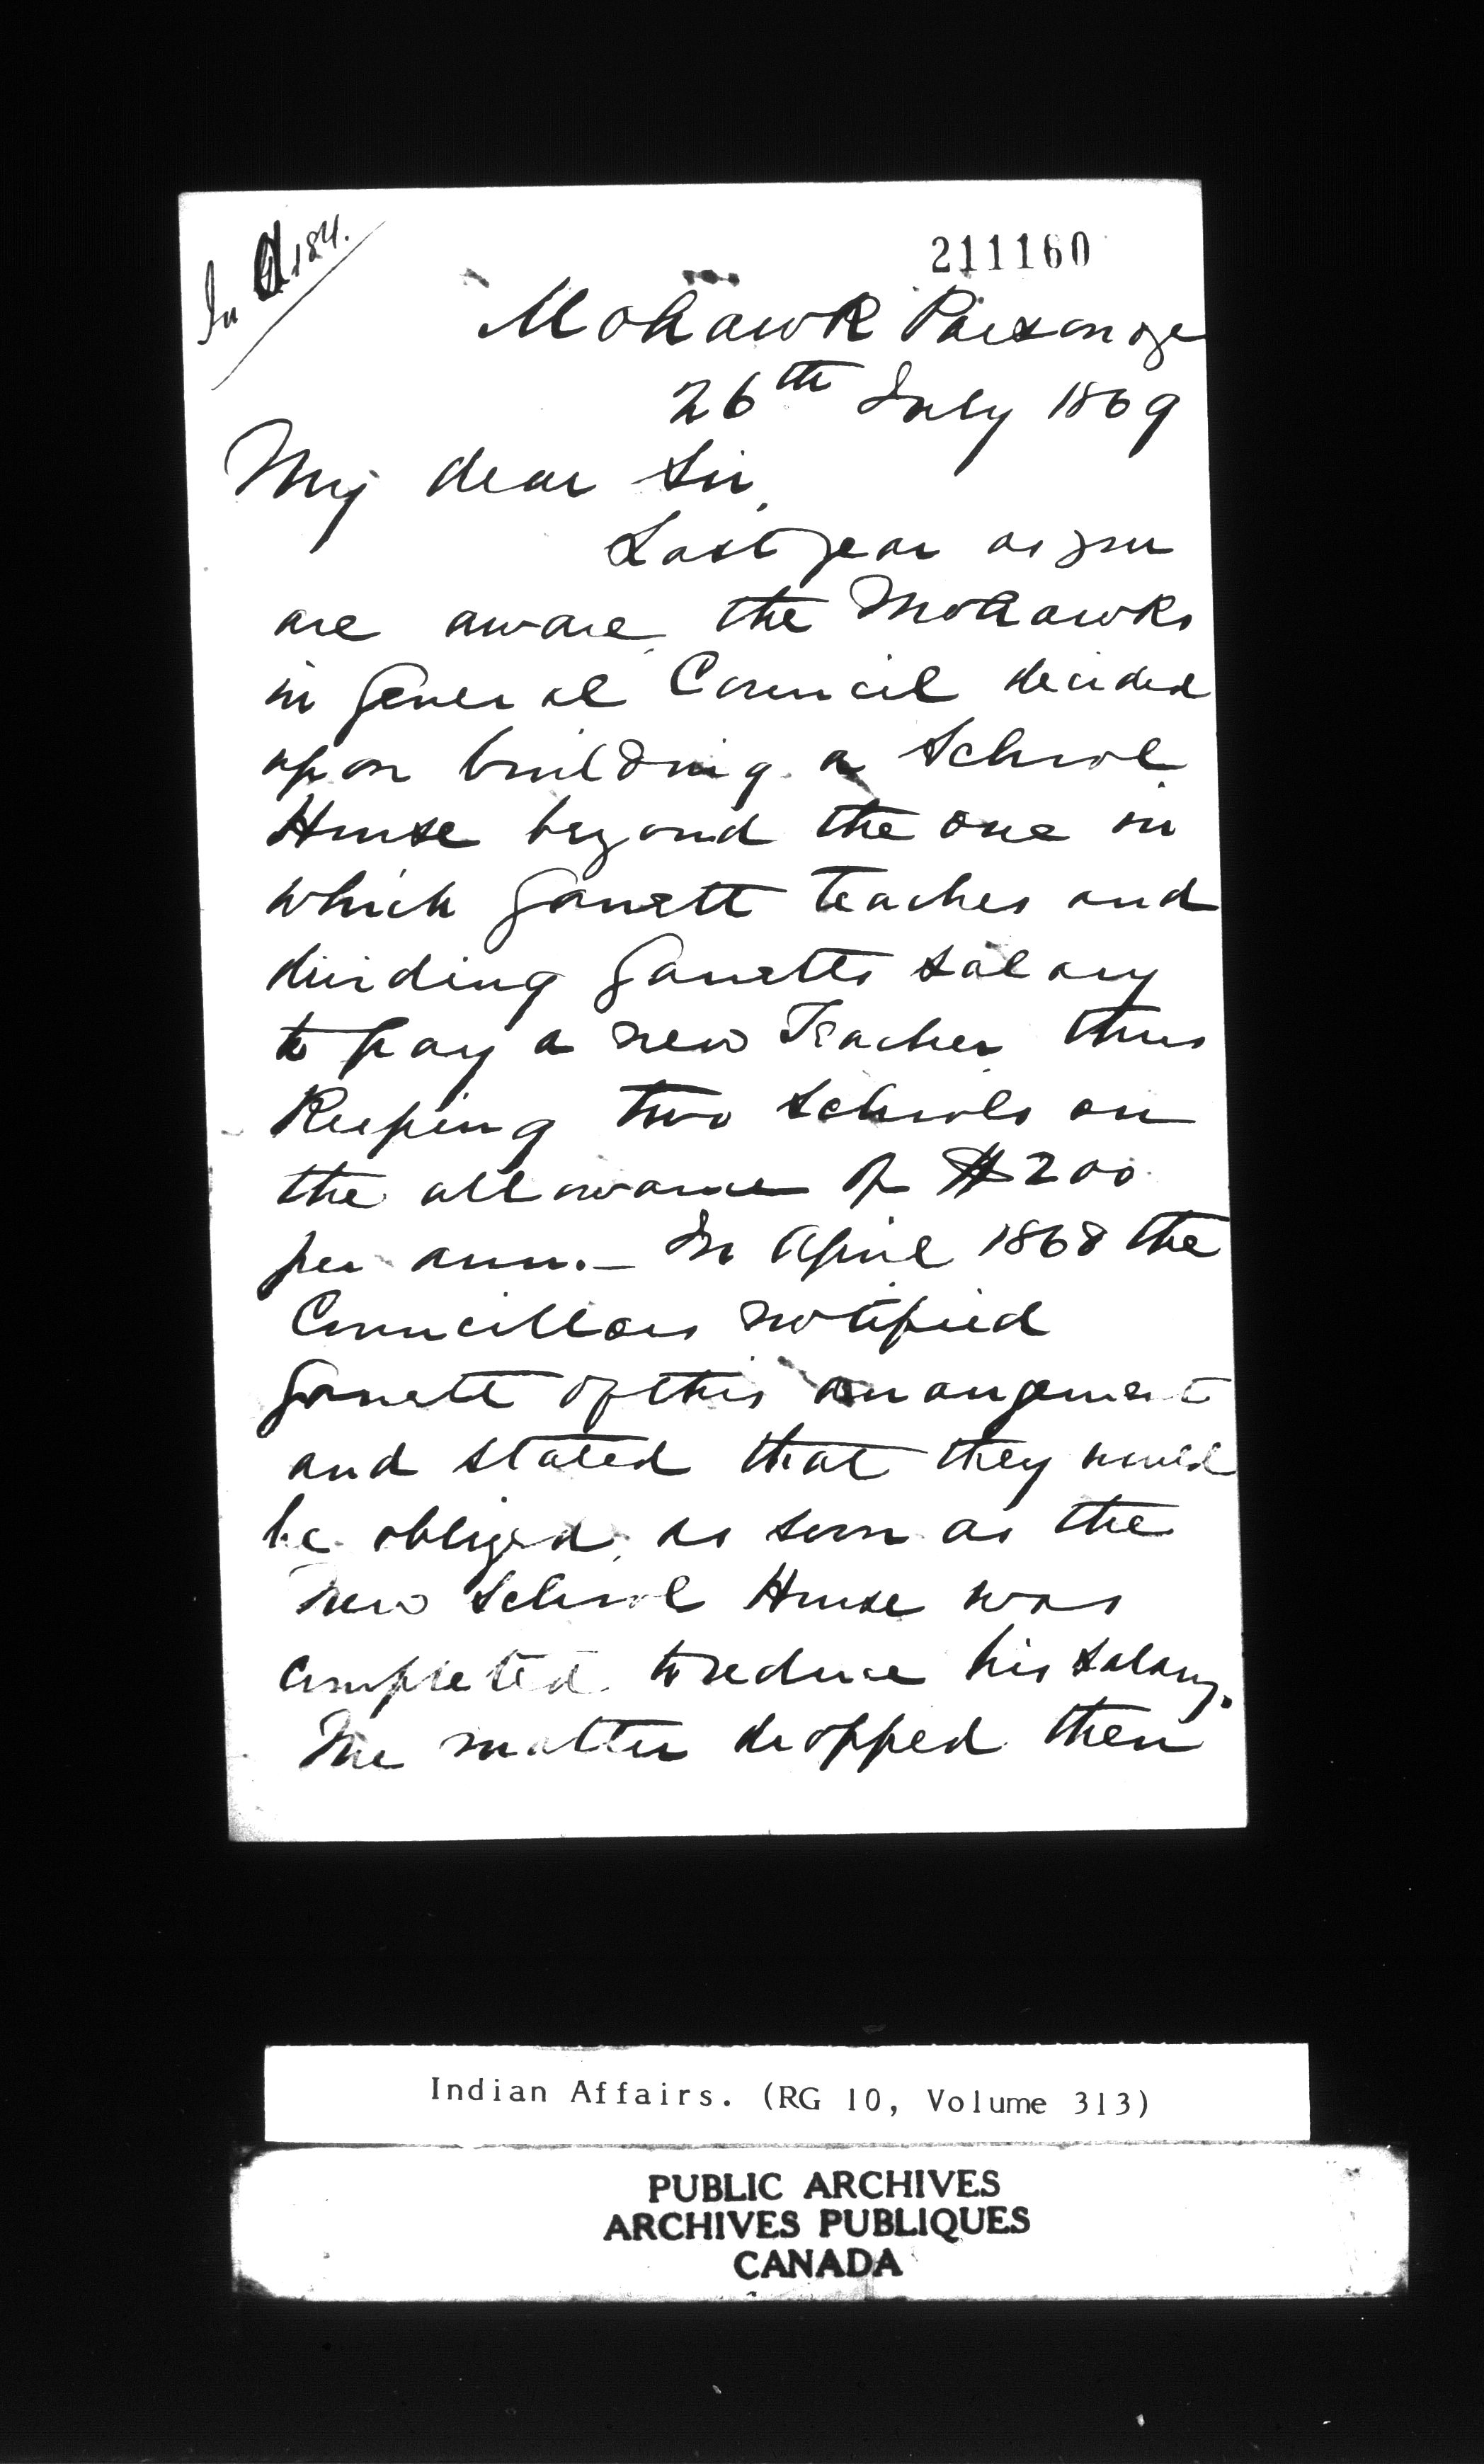 211160
Mohawk Parsonage
26th July 1869
My dear Sir,
Last year as you
are aware, the Mohawks
in General Council decided
upon building a School
House beyond the one in
which Garrett teaches and
dividing Garretts salary
to pay a new Teacher thus
Keeping two schools on
the allowance of $200
per ann. — In April 1868 the
Councillors notified
Garrett of this arrangement
and stated that they would
be obliged, as soon as the
new School House was
completed to reduce his salary.
The matter dropped then
Indian Affairs. (RG 10, Volume 313)
PUBLIC ARCHIVES
ARCHIVES PUBLIQUES
CANADA